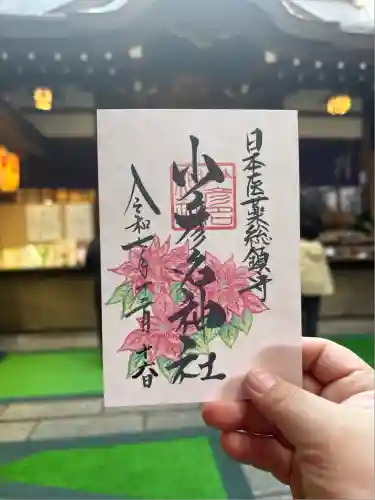 日本医薬総鎮守
少彦名神社
令和七年十二月十六日